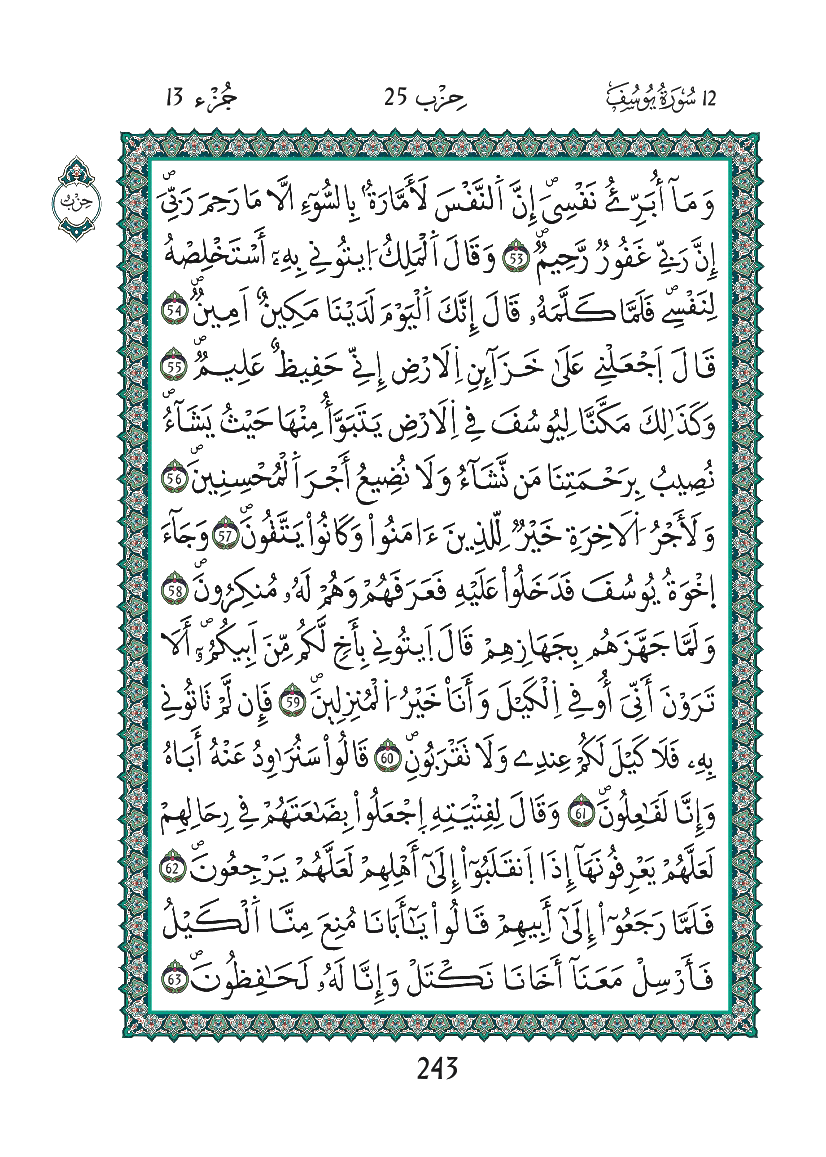 12 سُورَةُ يُوسُفَ حِزْب 25 جُزْء 13
حِزْب
وَمَآ أُبَرِّئُ نَفْسِيَ إِنَّ اَ۬لنَّفْسَ لَأَمَّارَةُۢ بِالسُّوٓءِ اِلَّا مَا رَحِمَ رَبِّيَ
إِنَّ رَبِّے غَفُورٞ رَّحِيمٞ 53 وَقَالَ اَ۬لْمَلِكُ اُ۪يتُونِے بِهِۦٓ أَسْتَخْلِصْهُ
لِنَفْسِے فَلَمَّا كَلَّمَهُۥ قَالَ إِنَّكَ اَ۬لْيَوْمَ لَدَيْنَا مَكِينٌ اَمِينٞ 54
قَالَ اَ۪جْعَلْنِے عَلَىٰ خَزَآئِنِ اِ۬لَارْضِ إِنِّے حَفِيظٌ عَلِيمٞ 55
وَكَذَٰلِكَ مَكَّنَّا لِيُوسُفَ فِے اِ۬لَارْضِ يَتَبَوَّأُ مِنْهَا حَيْثُ يَشَآءُ
نُصِيبُ بِرَحْمَتِنَا مَن نَّشَآءُ وَلَا نُضِيعُ أَجْرَ اَ۬لْمُحْسِنِينَ 56
وَلَأَجْرُ اُ۬لَاخِرَةِ خَيْرٞ لِّلَّذِينَ ءَامَنُواْ وَكَانُواْ يَتَّقُونَ 57 وَجَآءَ
إِخْوَةُ يُوسُفَ فَدَخَلُواْ عَلَيْهِ فَعَرَفَهُمْ وَهُمْ لَهُۥ مُنكِرُونَ 58
وَلَمَّا جَهَّزَهُم بِجَهَازِهِمْ قَالَ اَ۪يتُونِے بِأَخٖ لَّكُم مِّنَ اَبِيكُمُۥٓ أَلَا
تَرَوْنَ أَنِّيَ أُوفِے اِ۬لْكَيْلَ وَأَنَا۠ خَيْرُ اُ۬لْمُنزِلِينَ 59 فَإِن لَّمْ تَاتُونِے
بِهِۦ فَلَا كَيْلَ لَكُمْ عِندِے وَلَا تَقْرَبُونِ 60 قَالُواْ سَنُرَٰوِدُ عَنْهُ أَبَاهُ
وَإِنَّا لَفَٰعِلُونَ 61 وَقَالَ لِفِتْيَتِهِ اِ۪جْعَلُواْ بِضَٰعَتَهُمْ فِے رِحَالِهِمْ
لَعَلَّهُمْ يَعْرِفُونَهَآ إِذَا اَ۪نقَلَبُوٓاْ إِلَىٰٓ أَهْلِهِمْ لَعَلَّهُمْ يَرْجِعُونَ 62
فَلَمَّا رَجَعُوٓاْ إِلَىٰٓ أَبِيهِمْ قَالُواْ يَٰٓأَبَانَا مُنِعَ مِنَّا اَ۬لْكَيْلُ
فَأَرْسِلْ مَعَنَآ أَخَانَا نَكْتَلْ وَإِنَّا لَهُۥ لَحَٰفِظُونَ 63
243